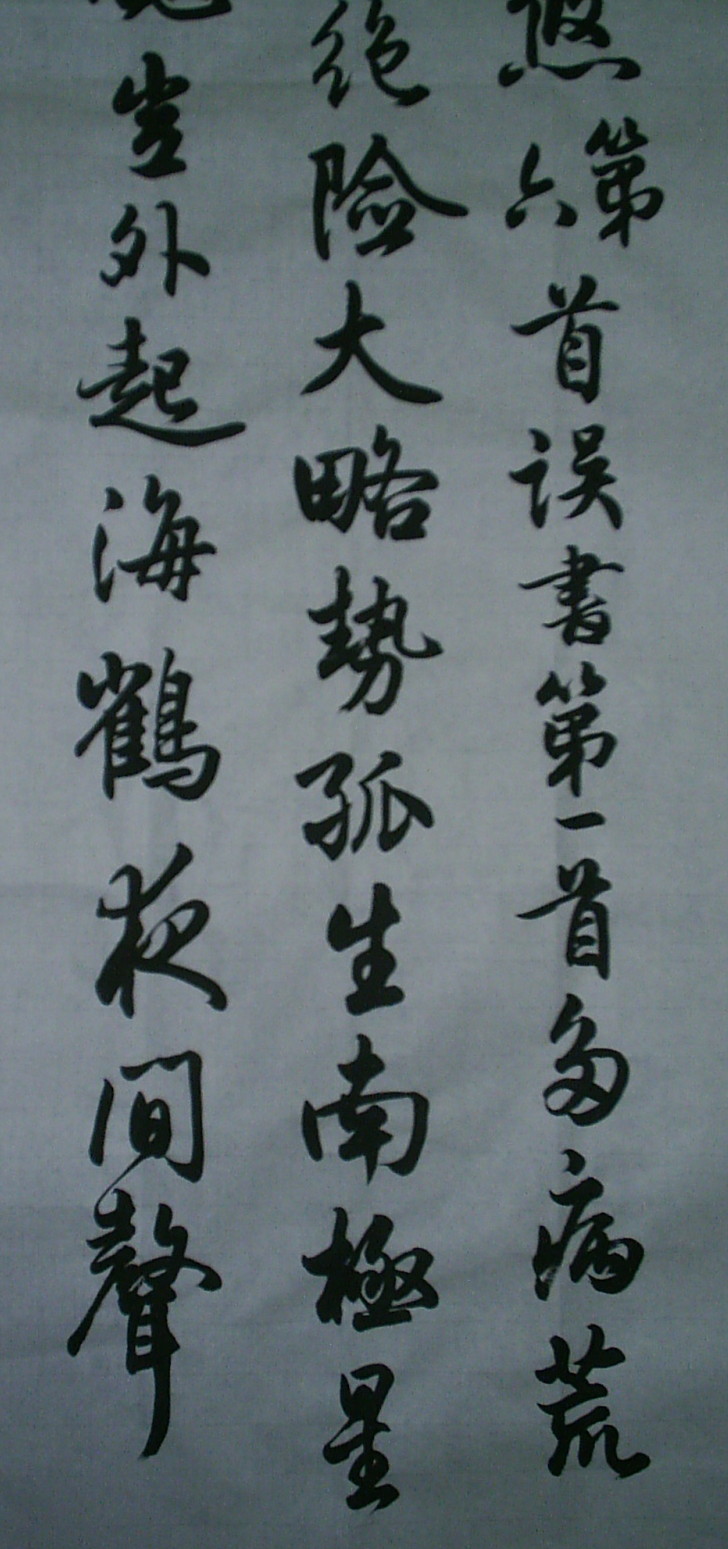 悠第六首误書第一首多病荒
绝險大略勢孤生南極星
豈外起海鶴夜間聲